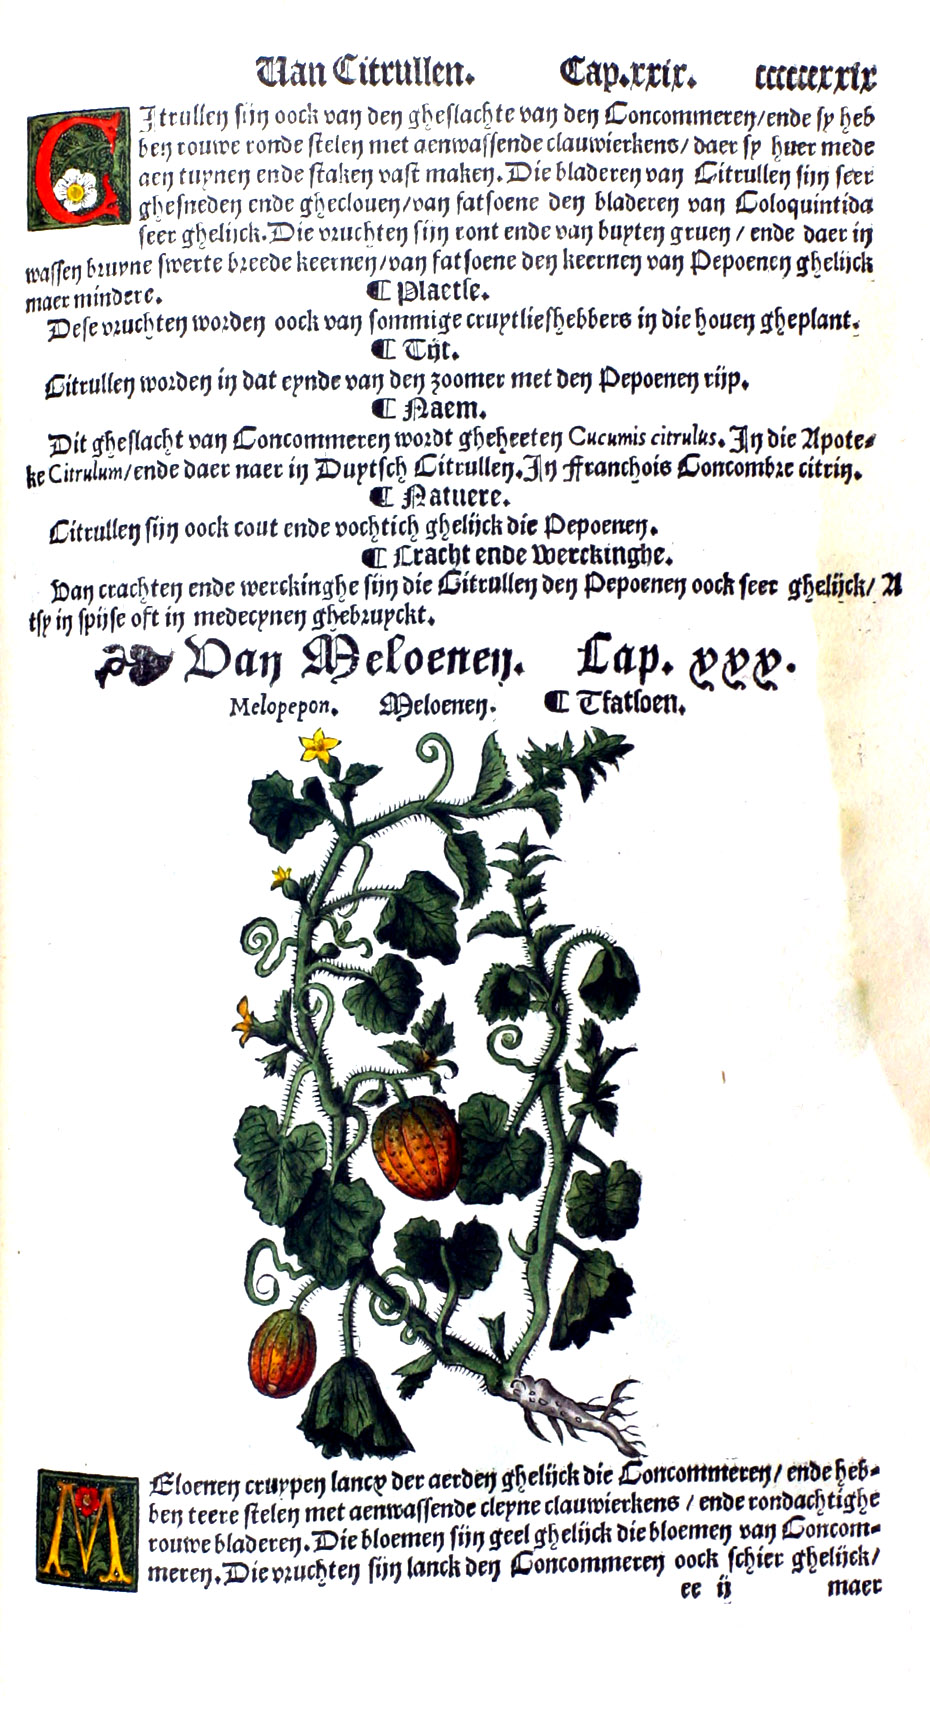 Van Citrullen. Cap.xxix. ccccccxxix
CItrullen sijn oock van den gheslachte van den Concommeren/ende sy heb
ben rouwe ronde stelen met aenwassende clauwierkens/ daer sy huer mede
aen tuynen ende staken vast maken. Die bladeren van Citrullen sijn seer
ghesneden ende ghecloven/van fatsoene den bladeren van Coloquintida
seer ghelijck. Die vruchten sijn ront ende van buyten gruen / ende daer in
wassen bruyne swerte breede keernen/van fatsoene den keernen van Pepoenen ghelijck
maer mindere. ¶ Plaetse.
Dese vruchten worden oock van sommige cruytliefhebbers in die hoven gheplant.
¶ Tijt.
Citrullen worden in dat eynde van den zoomer met den Pepoenen rijp.
¶ Naem.
Dit gheslacht van Concommeren wordt gheheeten Cucumis citrulus. In die Apote-
ke Citrulum/ende daer naer in Duytsch Citrullen. In Franchois Concombre citrin.
¶ Natuere.
Citrullen sijn oock cout ende vochtich ghelijck die Pepoenen.
¶ Cracht ende Werckinghe.
Van crachten ende werckinghe sijn die Citrullen den Pepoenen oock seer ghelijck/ A
tsy in spijse oft in medecynen ghebruyckt.
Van Meloenen. Cap. xxx.
Melopepon. Meloenen. ¶ Tfatsoen.
MEloenen cruypen lancx der aerden ghelijck die Concommeren/ ende heb-
ben teere stelen met aenwassende cleyne clauwierkens / ende rondachtighe
rouwe bladeren. Die bloemen sijn geel ghelijck die bloemen van Concom-
meren. Die vruchten sijn lanck den Concommeren oock schier ghelijck/
ee ij maer